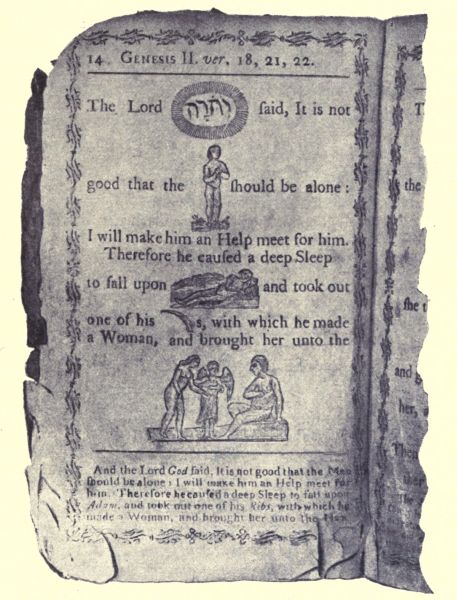 14 GENESIS II. ver. 18, 21, 22.
The Lord יהוה ſaid, It is not
good that the ſhould be alone :
I will make him an Help meet for him.
Therefore he cauſed a deep Sleep
to fall upon and took out
one of his s, with which he made
a Woman, and brought her unto the
And the Lord God ſaid, It is not good that the Man
ſhould be alone : I will make him an Help meet for
him. Therefore he cauſed a deep Sleep to fall upon
Adam, and took out one of his Ribs, with which he
made a Woman, and brought her unto the Man.
the
her,